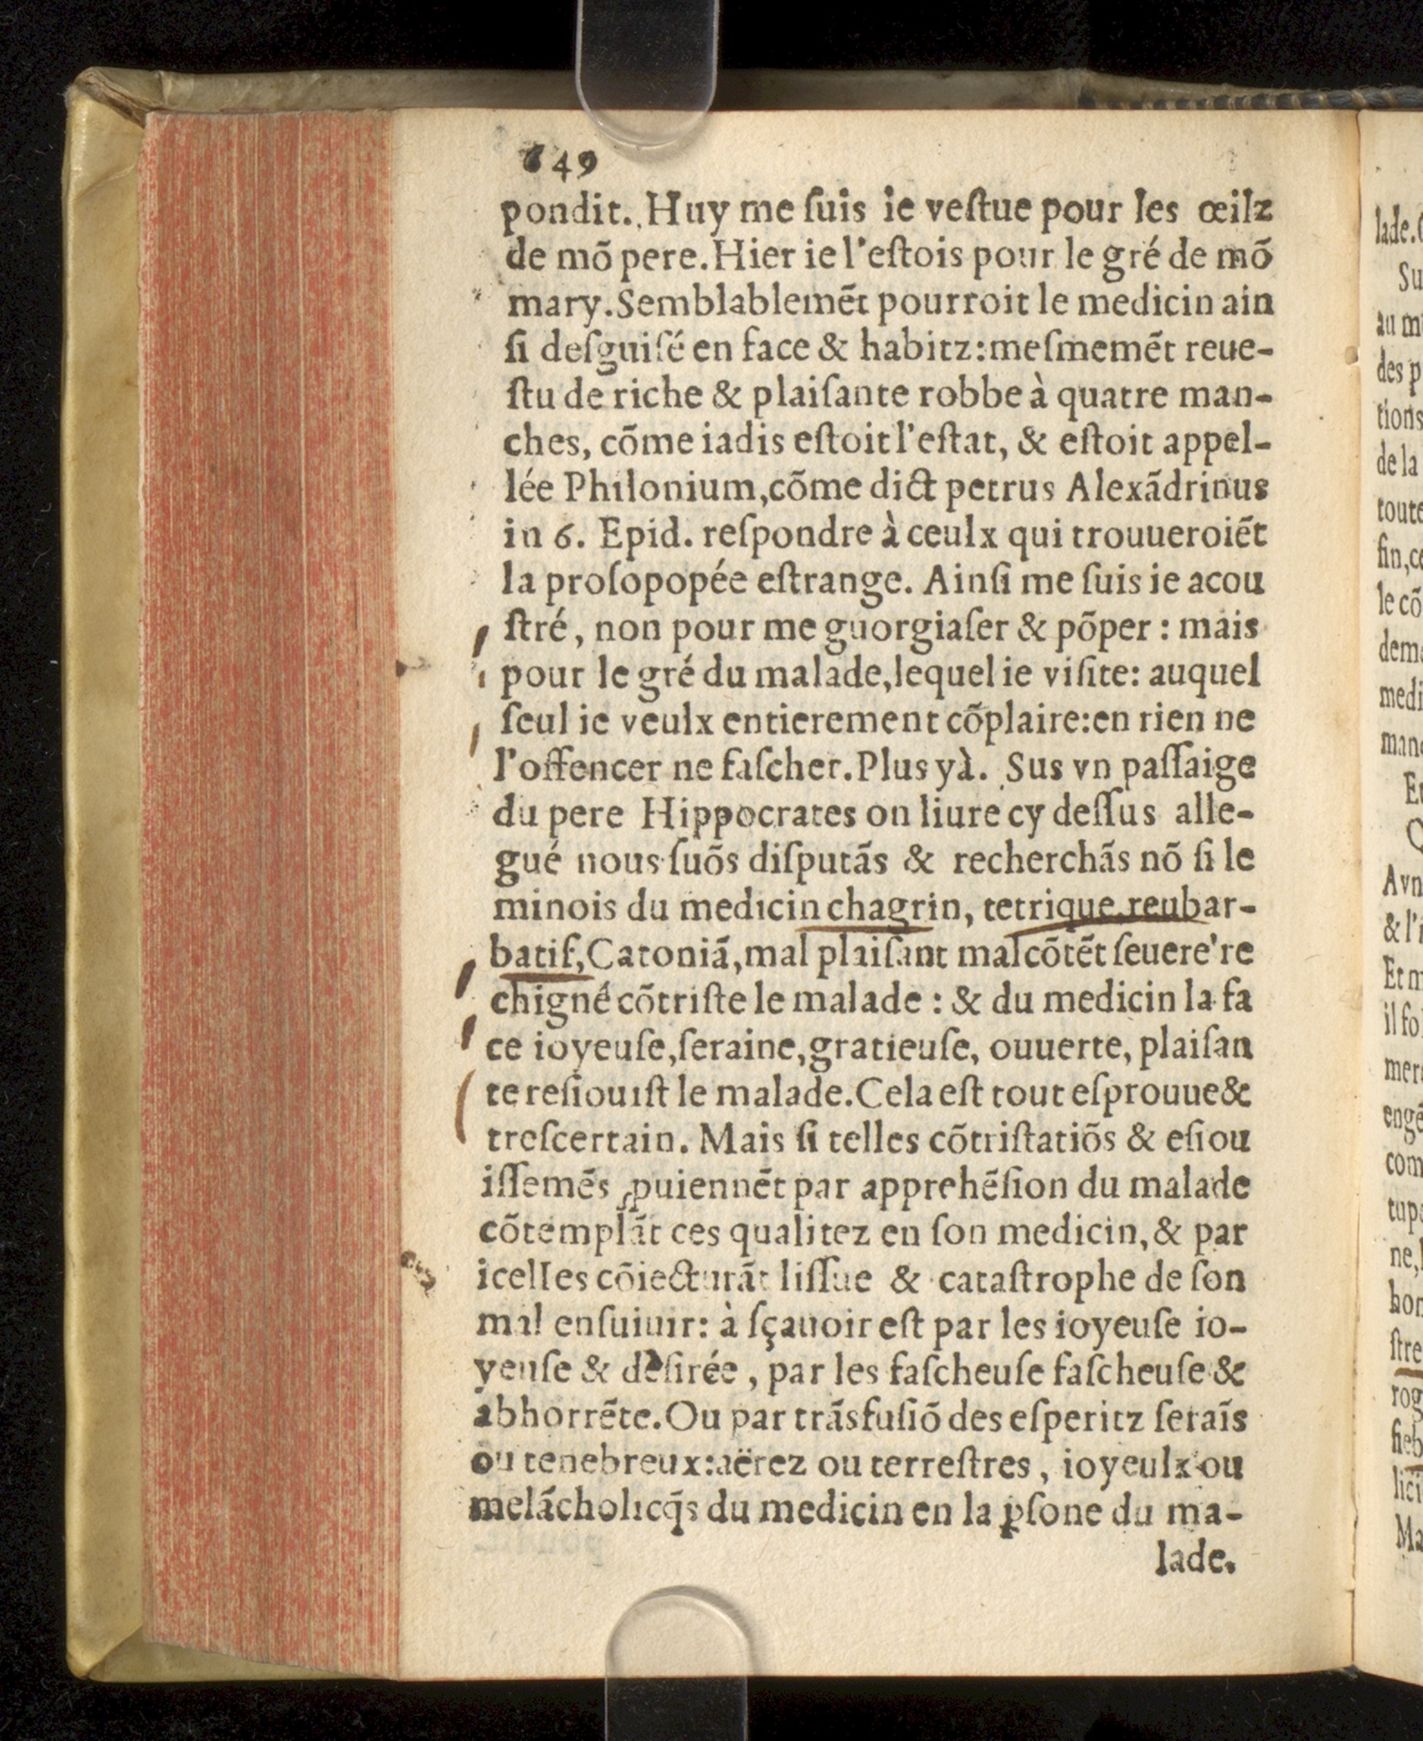 649
pondit. Huy me ſuis ie veſtue pour les œilz
de mõ pere. Hier ie l'eſtois pour le gré de mõ
mary. Semblablemẽt pourroit le medicin ain
ſi deſguiſé en face & habitz: meſmemẽt reue-
ſtu de riche & plaiſante robbe à quatre man-
ches, cõme iadis eſtoit l'eſtat, & eſtoit appel-
lée Philonium, cõme dict petrus Alexãdrinus
in 6. Epid. reſpondre à ceulx qui trouueroiẽt
la proſopopée eſtrange. Ainſi me ſuis ie acou
ſtré, non pour me guorgiaſer & põper: mais
pour le gré du malade, lequel ie viſite: auquel
ſeul ie veulx entierement cõplaire: en rien ne
l'offencer ne faſcher. Plus yà. Sus vn paſſaige
du pere Hippocrates on liure cy deſſus alle-
gué nous ſuõs diſputãs & recherchãs nõ ſi le
minois du medicin chagrin, tetrique, reubar-
batif, Catoniã, mal plaiſant malcõtẽt ſeuere're
chigné cõtriſte le malade: & du medicin la fa
ce ioyeuſe, ſeraine, gratieuſe, ouuerte, plaiſan
te reſiouiſt le malade. Cela eſt tout eſprouue &
treſcertain. Mais ſi telles cõtriſtatiõs & eſiou
iſſemẽs ꝓuiennẽt par apprehẽſion du malade
cõtemplãt ces qualitez en ſon medicin, & par
icelles cõiecturãt liſſue & cataſtrophe de ſon
mal enſuiuir: à ſçauoir eſt par les ioyeuſe io-
yeuſe & deſirée, par les faſcheuſe faſcheuſe &
abhorrẽte. Ou par trãsfuſiõ des eſperitz ſeraĩs
ou tenebreux: aërez ou terreſtres, ioyeulx ou
melãcholicq̃s du medicin en la ꝑſone du ma-
lade.